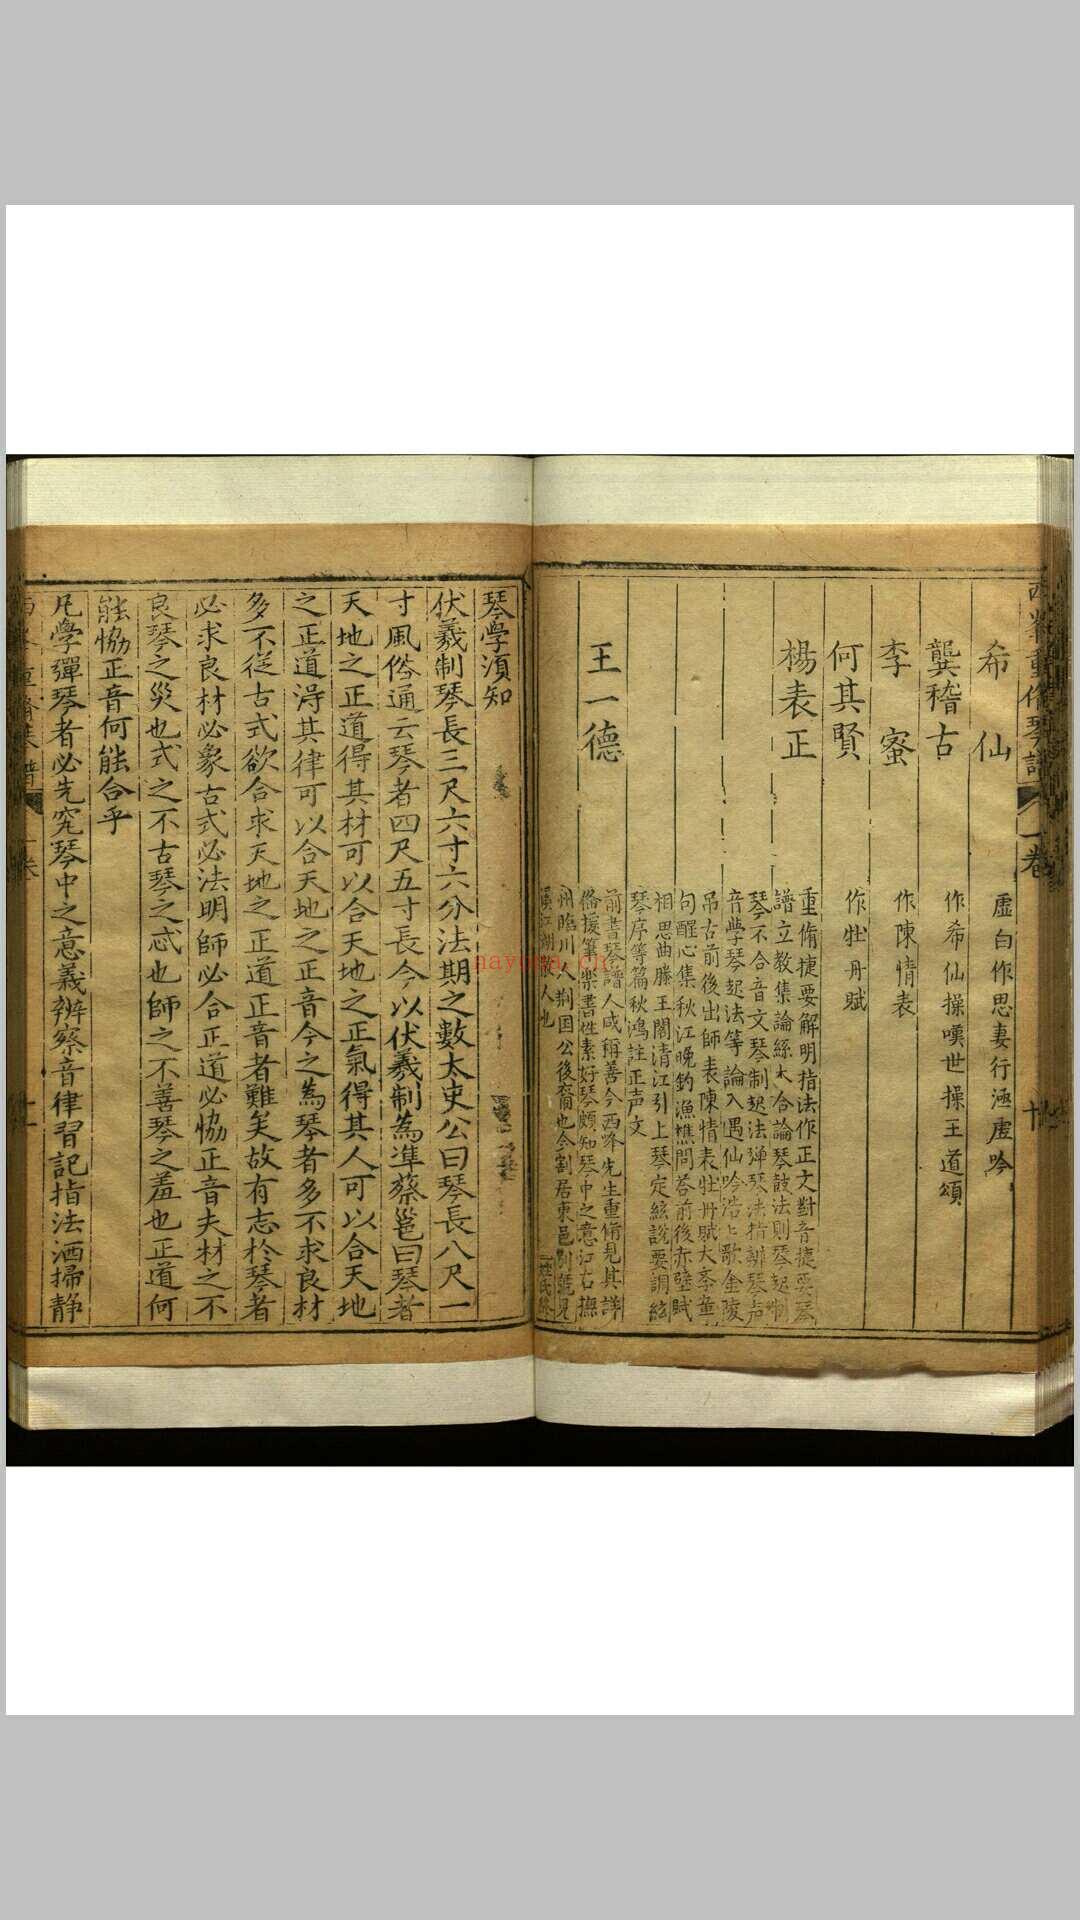 希仙
虛白作思妻行湮虛吟
龔稽古
作希仙操嘆世操王道頌
李蜜
作陳情表
何其賢
作牡丹賦
楊表正
重脩捷要解明指法作正文對音捷要琴
譜立教集論絲木合論琴鼓法則琴起制
琴不合音文琴制起法弹琴法指辨琴声
音學琴起法等論入遇仙吟浩上歌金陵
吊古前後出師表陳情表牡丹賦大孝
句醒心集秋江晚釣漁樵問荅前後赤壁賦
相思曲滕王閣清江引上琴定絃說要調絃
琴序等篇秋鴻註正声文
王一德
前書琴譜人咸稱善今西峰先生重脩見其詳
脩援筆樂書性素好琴頗知琴中之意江右撫
州臨川人荆国公後裔也今割居東邑别號見
溪江湖人也
琴學須知
伏羲制琴長三尺六寸六分法期之數太史公曰琴長八尺一
寸風俗通云琴者四尺五寸長今以伏羲制為凖蔡邕曰琴者
天地之正道得其材可以合天地之正氣得其人可以合天地
之正道淂其律可以合天地之正音今之為琴者多不求良材
多不從古式欲合求天地之正道正音者難矣故有志於琴者
必求良材必象古式必法明師必合正道必恊正音夫材之不
良琴之災也式之不古琴之忒也師之不善琴之羞也正道何
能恊正音何能合乎
凡學彈琴者必先究琴中之意義辨察音律習記指法洒掃静
aayona.cn